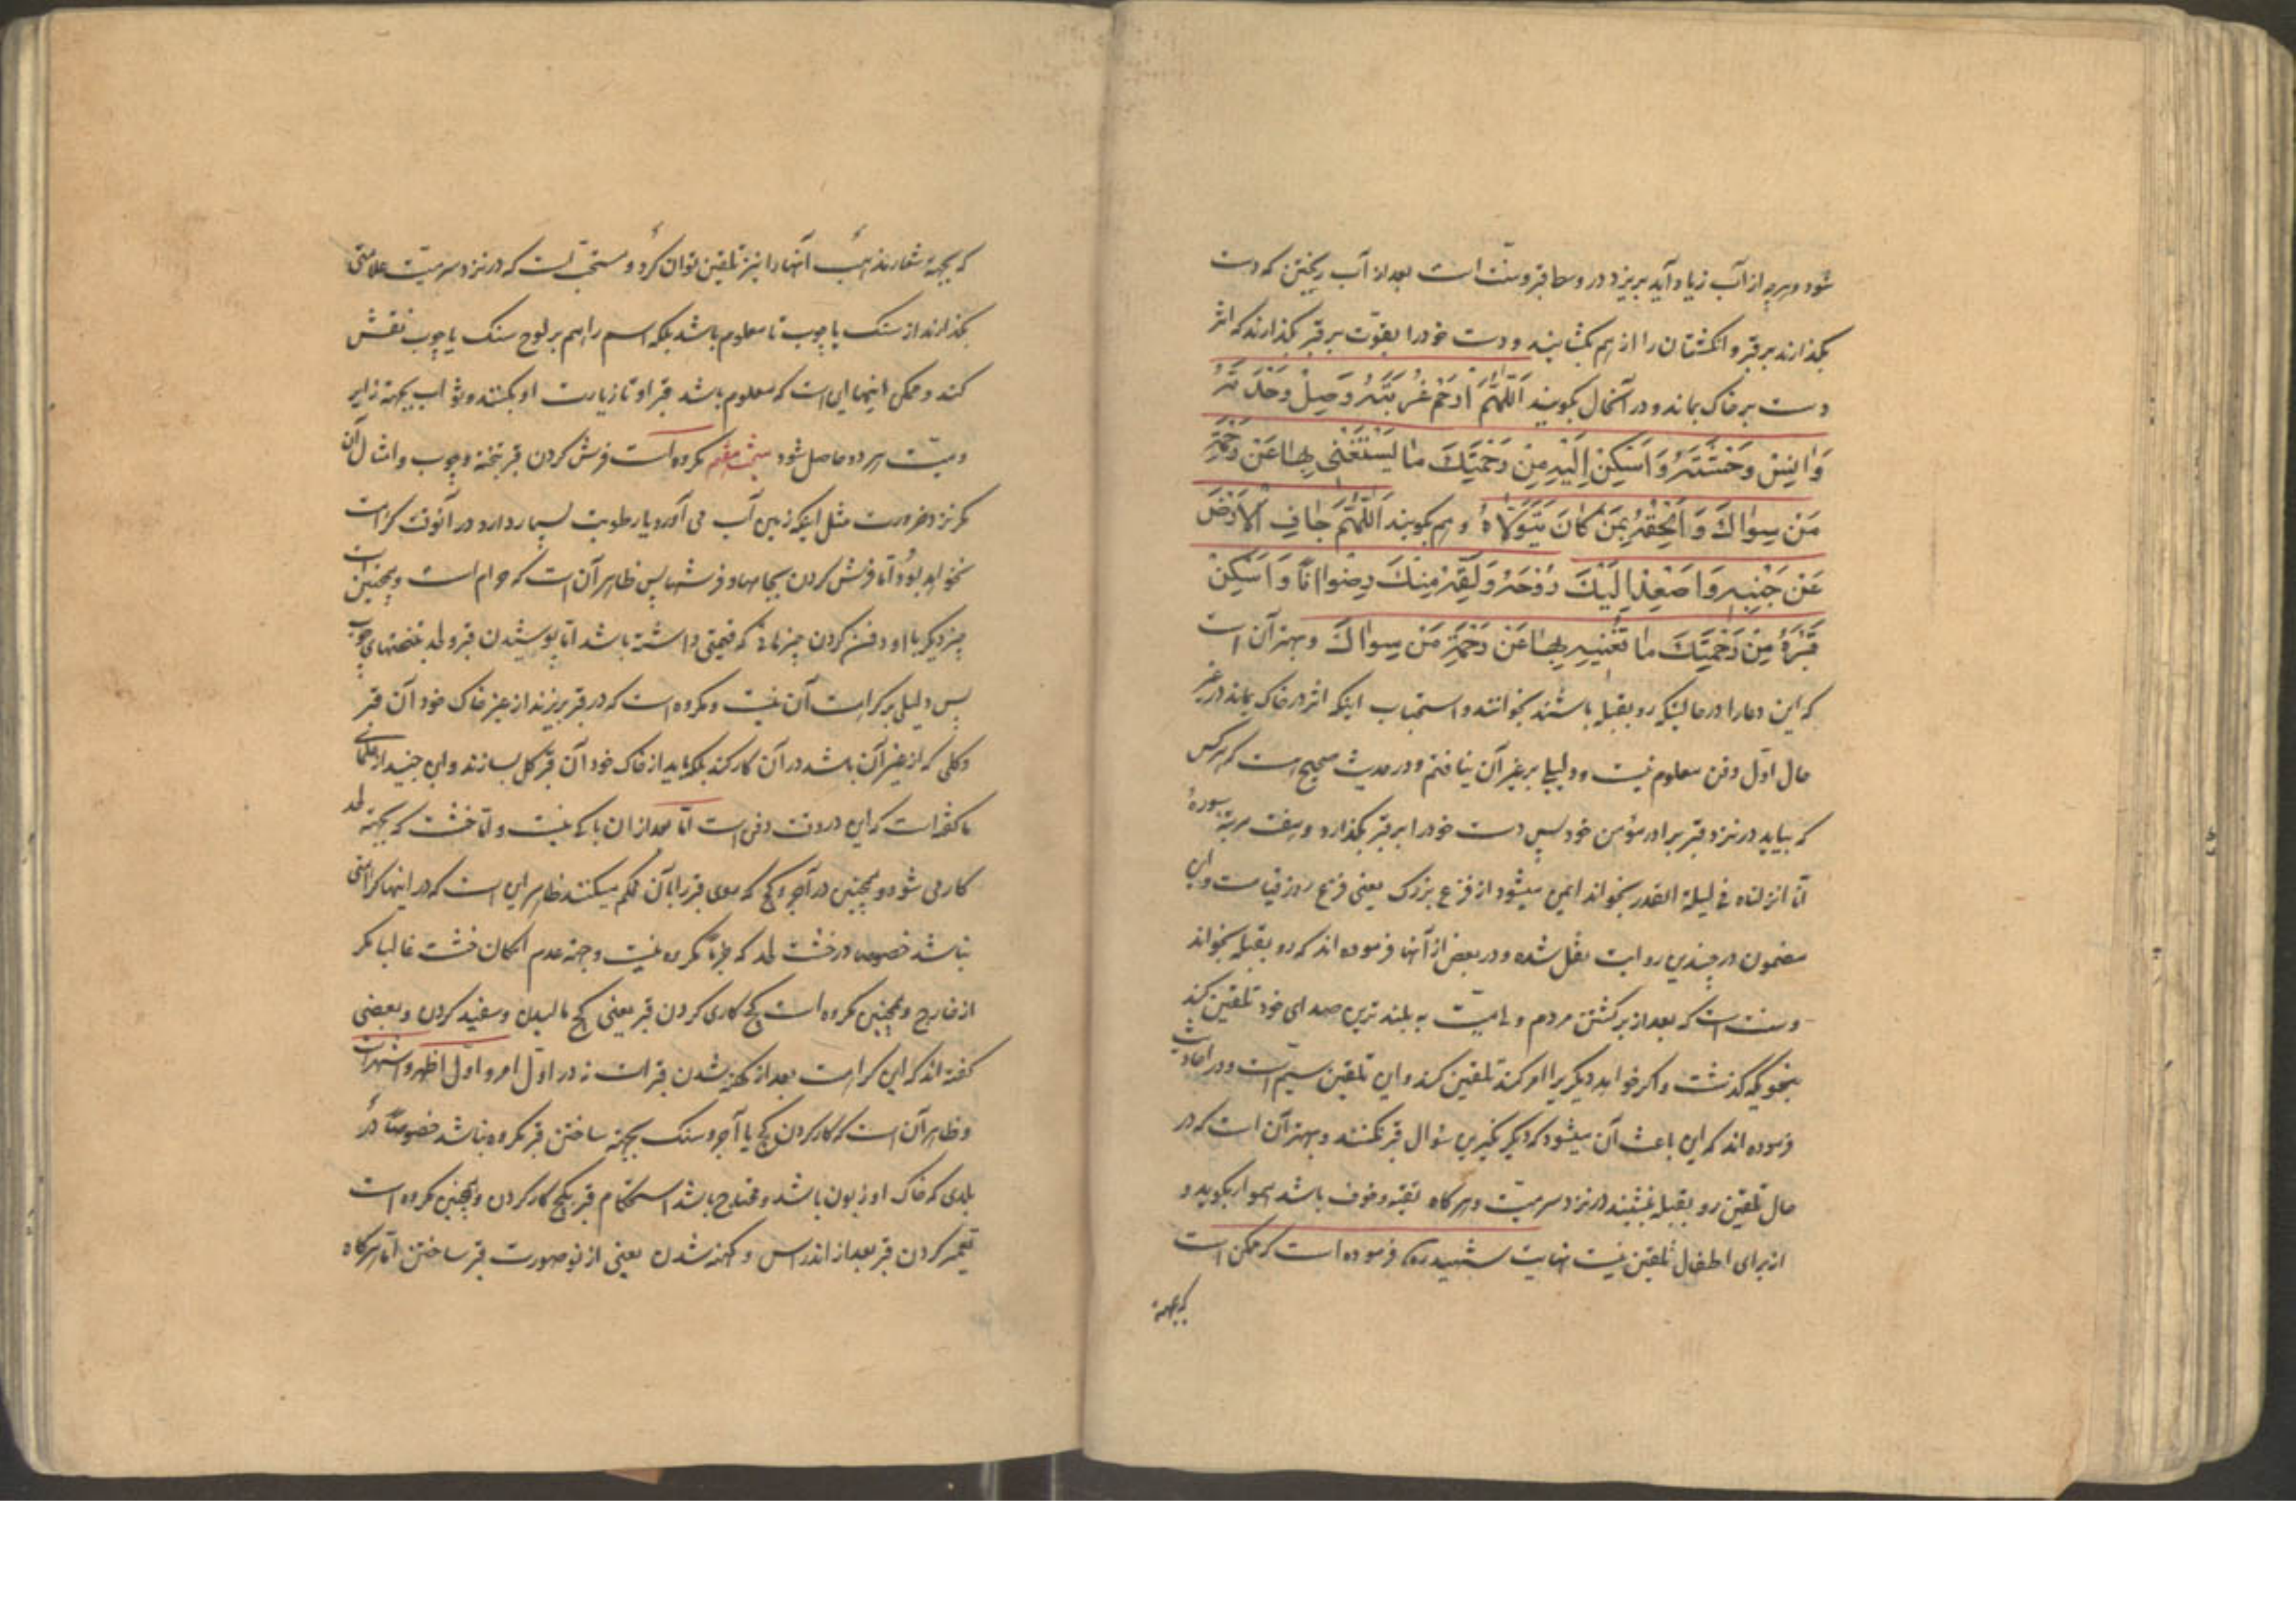 شود و هرچه از آب زیاد آید بریزد در وسط قبر و سنّت است بعد از آب ریختن که دست
بگذارند بر قبر و انگشتان را از هم بگشایند و دست خود را بقوّت بر قبر بگذارند که اثر
دست بر خاک بماند و در آنحال بگویند اَللّهُمَّ ارْحَمْ غُرْبَتَهُ وَصِلْ وَحْدَتَهُ
وَانِسْ وَحْشَتَهُ وَاَسْكِنْ اِلَيْهِ مِنْ رَحْمَتِكَ مٰا يَسْتَغْنٖي بِهٰا عَنْ رَحْمَةِ
مَنْ سِوٰاكَ وَ اَلْحِقْهُ بِمَنْ كٰانَ يَتَوَلّٰاهُ و هم بگویند اَللّٰهُمَّ جٰافِ الْاَرْضَ
عَنْ جَنْبِهِ وَاصْعِدْ اِلَيْكَ رُوْحَهُ وَلَقِّهِ مِنْكَ رِضْوٰانًا وَ اَسْكِنْ
قَبْرَهُ مِنْ رَحْمَتِكَ مٰا تُغْنٖيهِ بِهٰا عَنْ رَحْمَةِ مَنْ سِوٰاكَ و بهتر آن است
که این دعا را در حالتیکه رو بقبله باشند بخوانند و استحباب اینکه اثر در خاک بماند در غیر
حال اوّل دفن معلوم نیست و دلیلی بر غیر آن نیافتم و در حدیث صحیح است که هر کس
که بیاید در نزد قبر برادر مؤمن خود پس دست خود را بر قبر بگذارد و هفت مرتبه سورهٔ
انّا انزلناه فی لیلة القدر بخواند ایمن میشود از فزع بزرگ یعنی فزع روز قیامت و این
مضمون در چندین روایت نقل شده و در بعض از آنها فرموده اند که رو بقبله بخواند
و سنت است که بعد از برگشتن مردم ولی میّت به بلند ترین صدای خود تلقین کند
بنحویکه گذشت و اگر خواهد دیگریرا امر کند تلقین کند و این تلقین سیّم است و در احادیث
فرموده اند که این باعث آن میشود که دیگر نکیرین سؤال قبر نکنند و بهتر آن است که در
حال تلقین رو بقبله بنشیند در نزد سر میّت و هر گاه تقیّه و خوف باشد هموار بگوید و
از برای اطفال تلقین نیست نهایت شهید ره فرموده است که ممکن است
که بجهة
که بجهة شعار مذهب آنها را نیز تلقین توان کرد و مستحبّ است که در نزد سر میّت علامتی
بگذارند از سنگ یا چوب تا معلوم باشد بلکه اسم را هم بر لوح سنگ یا چوب نقش
کنند و ممکن اینها این است که معلوم باشد قبر او تا زیارت او بکنند و ثواب بجهة زایر
و میّت هر دو حاصل شود مبحث هفتم مکروه است فرش کردن قبر بتخته و چوب و امثال آن
مگر نزد ضرورت مثل اینکه زمین آب می آورد یا رطوبت بسیار دارد در آنوقت کراهت
نخواهد بود و امّا فرش کردن بجامها و فرشها پس ظاهر آن است که حرام است و همچنین است
چیز دیگر با او دفن کردن چیزهائی که قیمتی داشته باشد امّا پوشیدن قبر و لحد بتختهای چوب
پس دلیلی بر کراهت آن نیست و مکروه است که در قبر بریزند از غیر خاک خود آن قبر
و گلی که از غیر آن باشد در آن کار کند بلکه باید از خاک خود آن قبر گل بسازند و ابن جنید از علمای
ما گفته است که این در وقت دفن است امّا بعد از ان باکی نیست و امّا خشت که بجهة لحد
کار می شود و همچنین در آجر و گچ که موی قبر را بآن محکم میکنند ظاهر این است که در اینها کراهتی
نباشد خصوصا در خشت لحد که جزمًا مکروه نیست و جهة عدم امکان خشت غالبا مگر
از خارج و همچنین مکروه است گچ کاری کردن قبر یعنی گچ مالیدن و سفید کردن و بعضی
گفته اند که این کراهت بعد از کهنه شدن قبر است نه در اوّل امر و اوّل اظهر و اشهر است
و ظاهر آن است که کار کردن گچ یا آجر و سنگ بجهة ساختن قبر مکروه نباشد خصوصًا در
بلدی که خاک او زبون باشد و محتاج باشد استحکام قبر بگچ کار کردن و همچنین مکروه است
تعمیر کردن قبر بعد از اندراس و کهنه شدن یعنی از نو صورت قبر ساختن امّا هرگاه